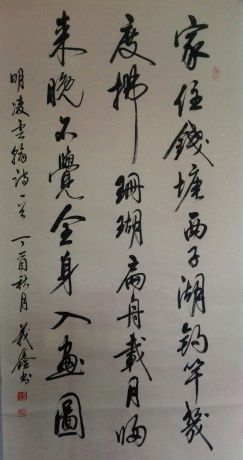 家住錢塘西子湖釣竿幾
度拂珊瑚扁舟載月歸
來晚不覺全身入畫圖
明凌雲翰詩一首 丁酉秋月 義鑫书